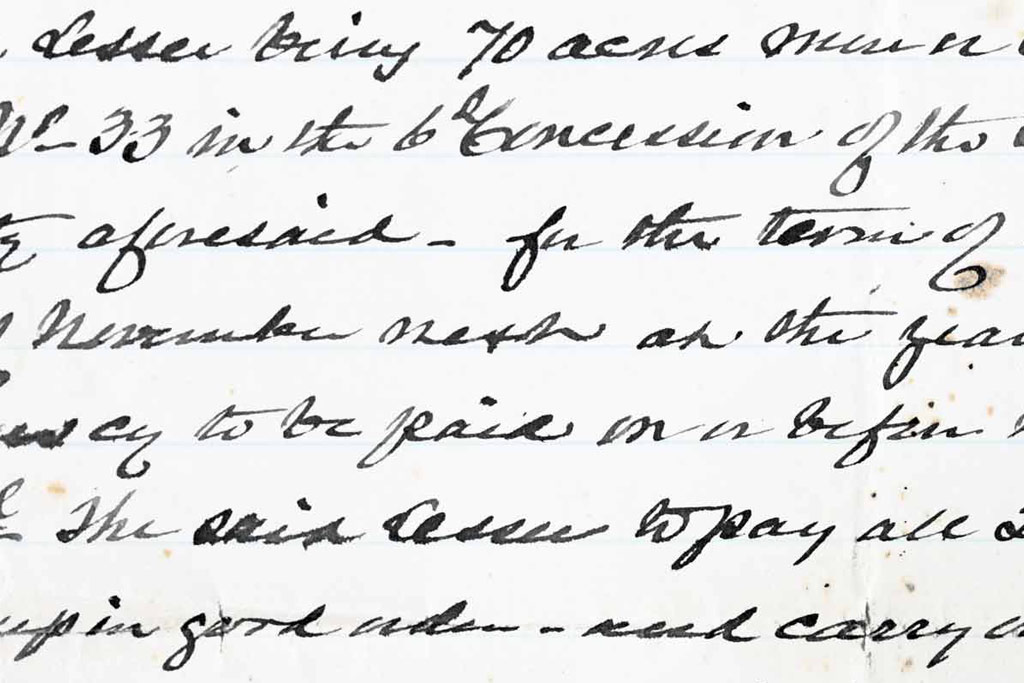 Lessee being 70 acres more or
No 33 in the 6th Concession of the
aforesaid - for the term of
November next at the year
cy to be paid on or before
The said Lessee to pay all
up in good order - and carry